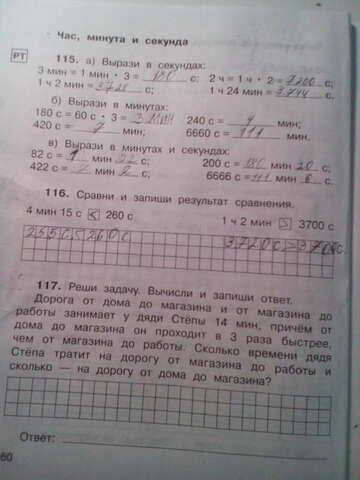 Час, минута и секунда
РТ
115. а) Вырази в секундах:
3 мин = 1 мин · 3 = 180 с; 2 ч = 1 ч · 2 = 7200 с;
1 ч 2 мин = 3720 с; 1 ч 24 мин = с.
б) Вырази в минутах:
180 с = 60 с · 3 = 3 мин 240 с = 4 мин;
420 с = 7 мин; 6660 с = 111 мин.
в) Вырази в минутах и секундах:
82 с = 1 мин 22 с; 200 с = 180 мин 20 с;
422 с = 7 мин 2 с; 6666 с = 111 мин 6 с.
116. Сравни и запиши результат сравнения.
4 мин 15 с < 260 с. 1 ч 2 мин > 3700 с
255с<260с 3720с>3700с
117. Реши задачу. Вычисли и запиши ответ.
Дорога от дома до магазина и от магазина до
работы занимает у дяди Стёпы 14 мин, причём от
дома до магазина он проходит в 3 раза быстрее,
чем от магазина до работы. Сколько времени дядя
Стёпа тратит на дорогу от магазина до работы и
сколько — на дорогу от дома до магазина?
Ответ:
60